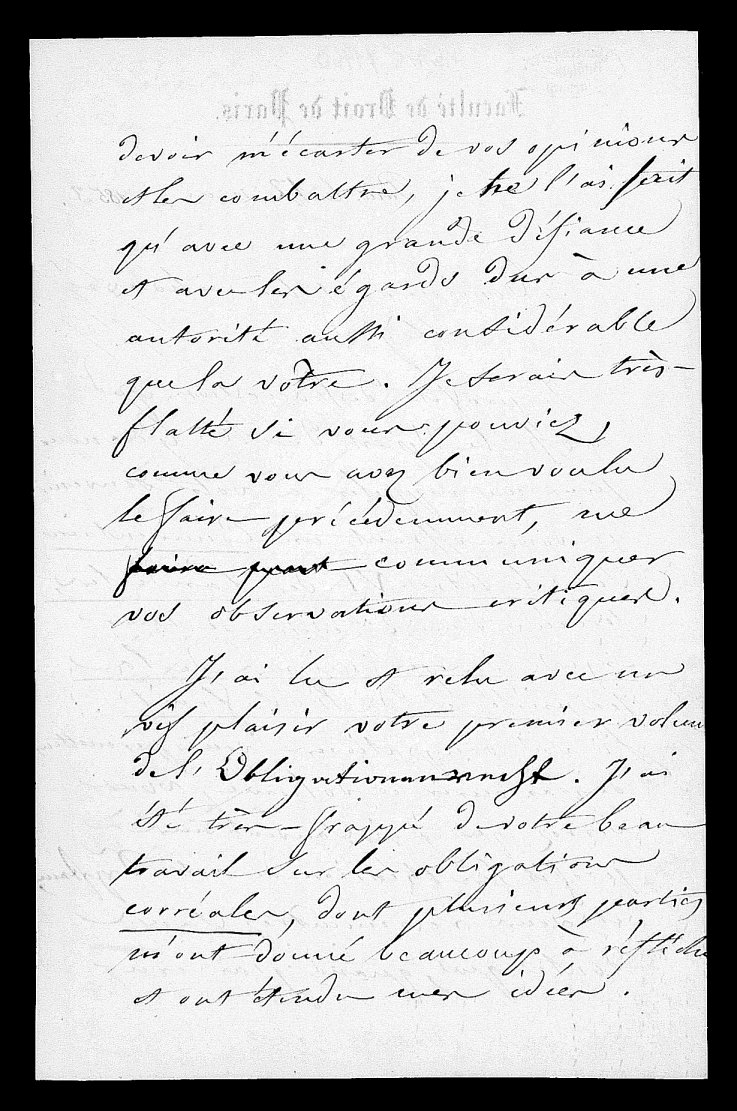 devoir m'écarter de vos opinions
et les combattre, je ne l'ai fait
qu'avec une grande défiance
et avec les égards dus à une
autorité aussi considérable
que la vôtre. Je serais très-
flatté si vous pouviez,
comme vous avez bien voulu
le faire précédemment, me
faire part communiquer
vos observations critiques.
J'ai lu et relu avec un
vif plaisir votre premier volume
de l'Obligationenrecht. J'ai
été très-frappé de votre beau
travail sur les obligations
corréales, dont plusieurs parties
m'ont donné beaucoup à réfléchir
et ont étendu mes idées.